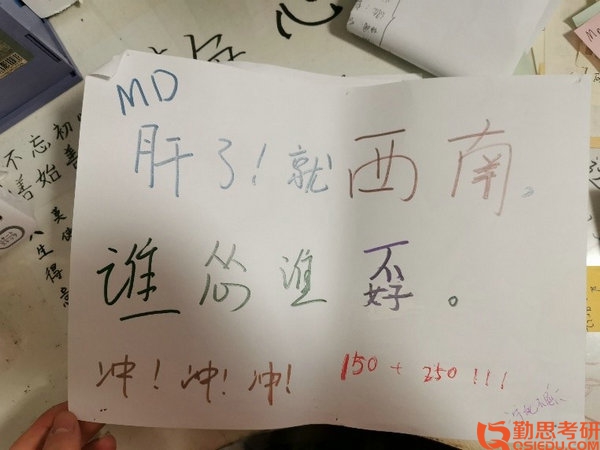 MD
肝了！就西南。
谁怂谁孬。
冲！冲！冲！ 150 + 250 ！！！
不忘初
善始善
生得意
勤思考研
QSIEDU.COM